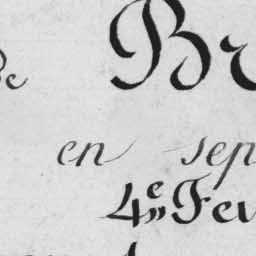 Br
en sep
4e Fev